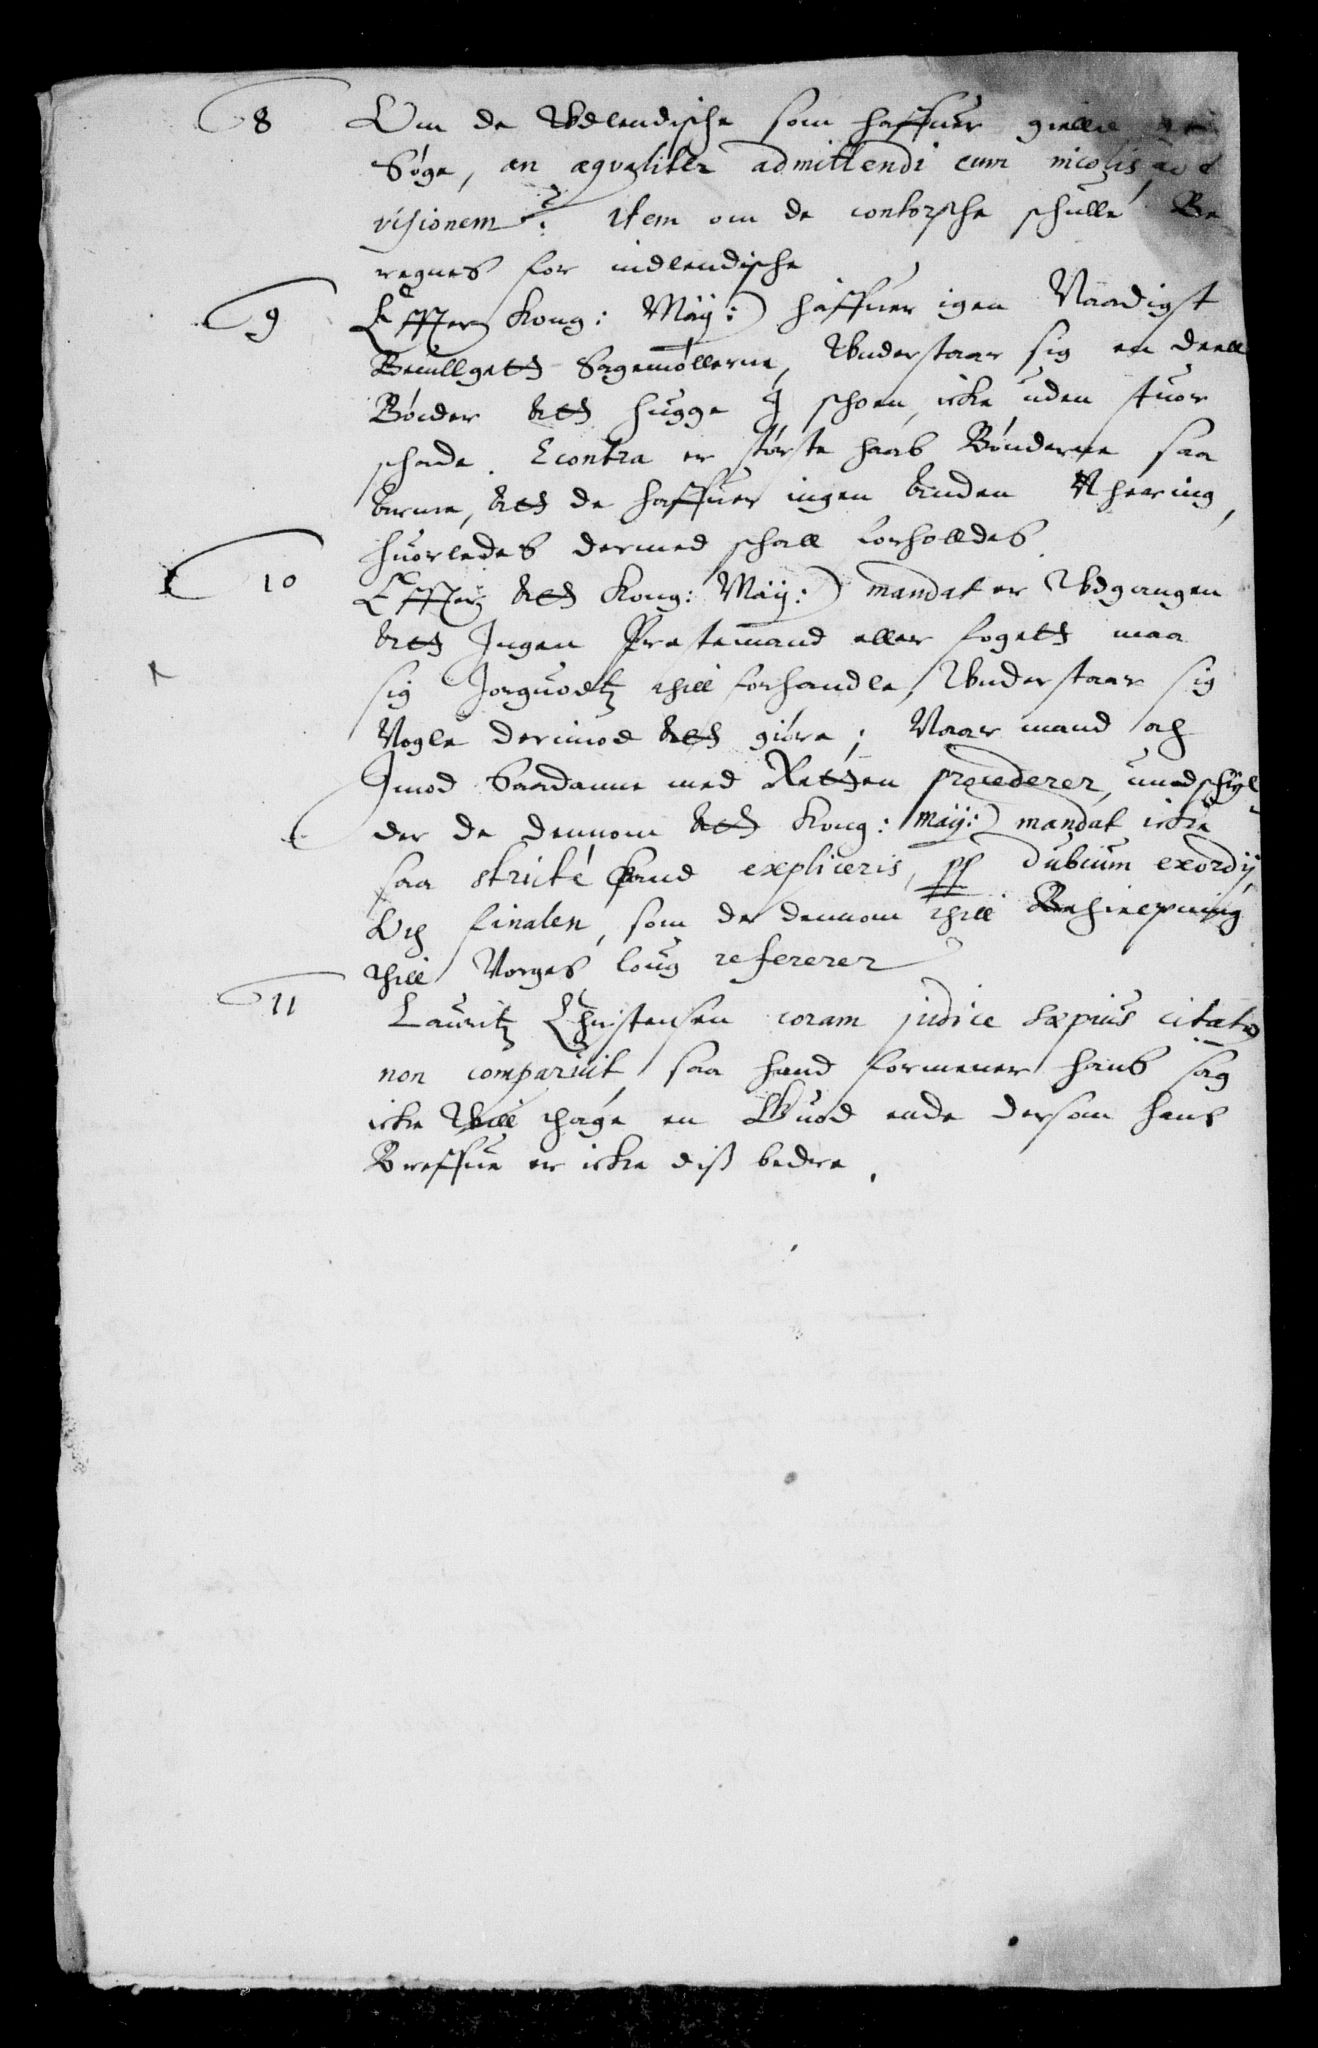 8 Om de Wdlendische som haffuer gielld
Søge, an æqvaliter admittendi cum incolis ad
visionem? item om de contorsche schulle Be
regnes for indlendische
9 Effter Kong: Maÿ: haffuer igen Naadigst
Beuillgett Sagemøllerne, Wnderstaar sig en deell
Bønder att hugge J schoen, icke uden stuor
schade. Econtra er største haab Bønderne saa
arme, att de haffuer ingen anden Nhering,
huorledes dermed schall forholldes.
10 Effter att Kong: Maÿ: mandat er Wdgangen
att Jngen Prestemand eller fogett maa
sig Jorguodtz thill forhandle, Wnderstaar sig
Nogle derimod att giøre; Naar mand och
Jmod Saadanne med Retten procederer, undschÿl
der de dennom att Kong: maÿ: mandat icke
saa stricté kand expliceris, pp dubium exordij
Och finalen, som de dennom thill Behielpning
thill Norges loug refererer
11 Lauritz Christensen coram judice sæpius citatus
non comparuit, saa hand formener hans sag
icke Will thage en Guod ende dersom hans
Breffue er icke diß bedre.